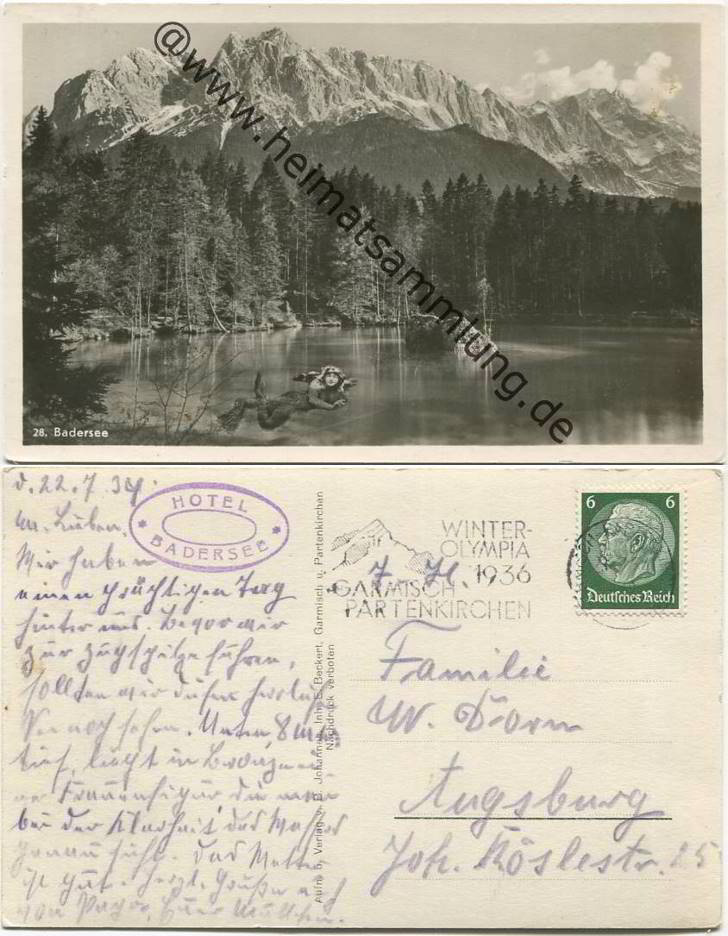 @www.heimatsammlung.de
28. Badersee
d. 22.7.34.
HOTEL
BADERSEE
M. Lieben.
Wir haben
einen prächtigen Tag
hinter uns. Bevor wir
zur Zugspitze fuhren,
sollten wir diesen herrlich
See noch sehen. Unten, 8 m
tief, liegt in Bronze
Frauenfigur die man
bei der Klarheit des Wassers
genau sieht. Das Wetter
ist gut. Herzl. Grüße
von
Aufn. u. Verlag v. B. Johannes, Inh. E. Beckert, Garmisch u. Partenkirchen
Nachdruck verboten
WINTER-
OLYMPIA
1936
GARMISCH
PARTENKIRCHEN
6 6
Deutsches Reich
Familie
W. Dorn
Augsburg
Joh. Röslestr. 25